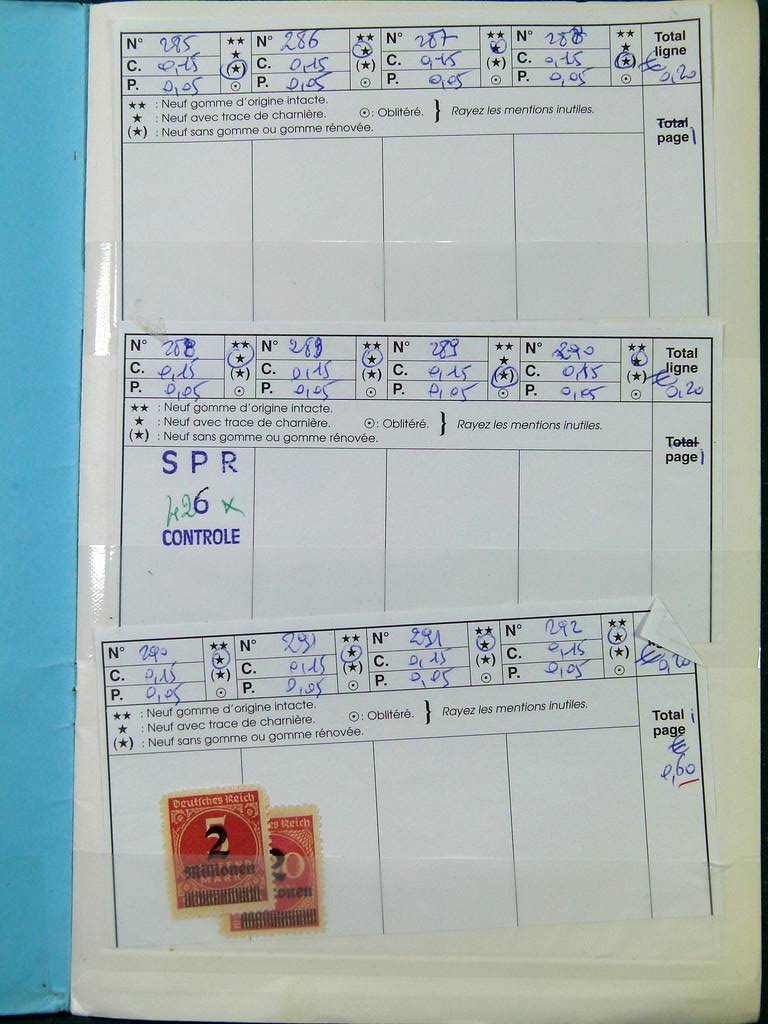 N° 285 ★★ N° 286 ★★ N° 287 ★★ N° 288 ★★ Total
★ ★ ★ ★ ligne
C. 0,15 (★) C. 0,15 (★) C. 0,15 (★) C. 0,15 (★) € 0,20
P. 0,05 ⊙ P. 0,05 ⊙ P. 0,05 ⊙ P. 0,05 ⊙
★★ : Neuf gomme d'origine intacte.
★ : Neuf avec trace de charnière. ⊙: Oblitéré. } Rayez les mentions inutiles.
(★) : Neuf sans gomme ou gomme rénovée.
Total
page
N° 288 ★★ N° 289 ★★ N° 289 ★★ N° 290 ★★ Total
★ ★ ★ ★ ligne
C. 0,15 (★) C. 0,15 (★) C. 0,15 (★) C. 0,15 (★) € 0,20
P. 0,05 ⊙ P. 0,05 ⊙ P. 0,05 ⊙ P. 0,05 ⊙
★★ : Neuf gomme d'origine intacte.
★ : Neuf avec trace de charnière. ⊙: Oblitéré. } Rayez les mentions inutiles.
(★) : Neuf sans gomme ou gomme rénovée.
Total
page
SPR
CONTROLE
N° 290 ★★ N° 291 ★★ N° 291 ★★ N° 292 ★★
★ ★ ★ ★
C. 0,15 (★) C. 0,15 (★) C. 0,15 (★) C. 0,15 (★) € 0,20
P. 0,05 ⊙ P. 0,05 ⊙ P. 0,05 ⊙ P. 0,05 ⊙
★★ : Neuf gomme d'origine intacte.
★ : Neuf avec trace de charnière. ⊙: Oblitéré. } Rayez les mentions inutiles.
(★) : Neuf sans gomme ou gomme rénovée.
Total
page
€
0,60
Deutsches Reich
2
Millionen
MARK
es Reich
20
onen